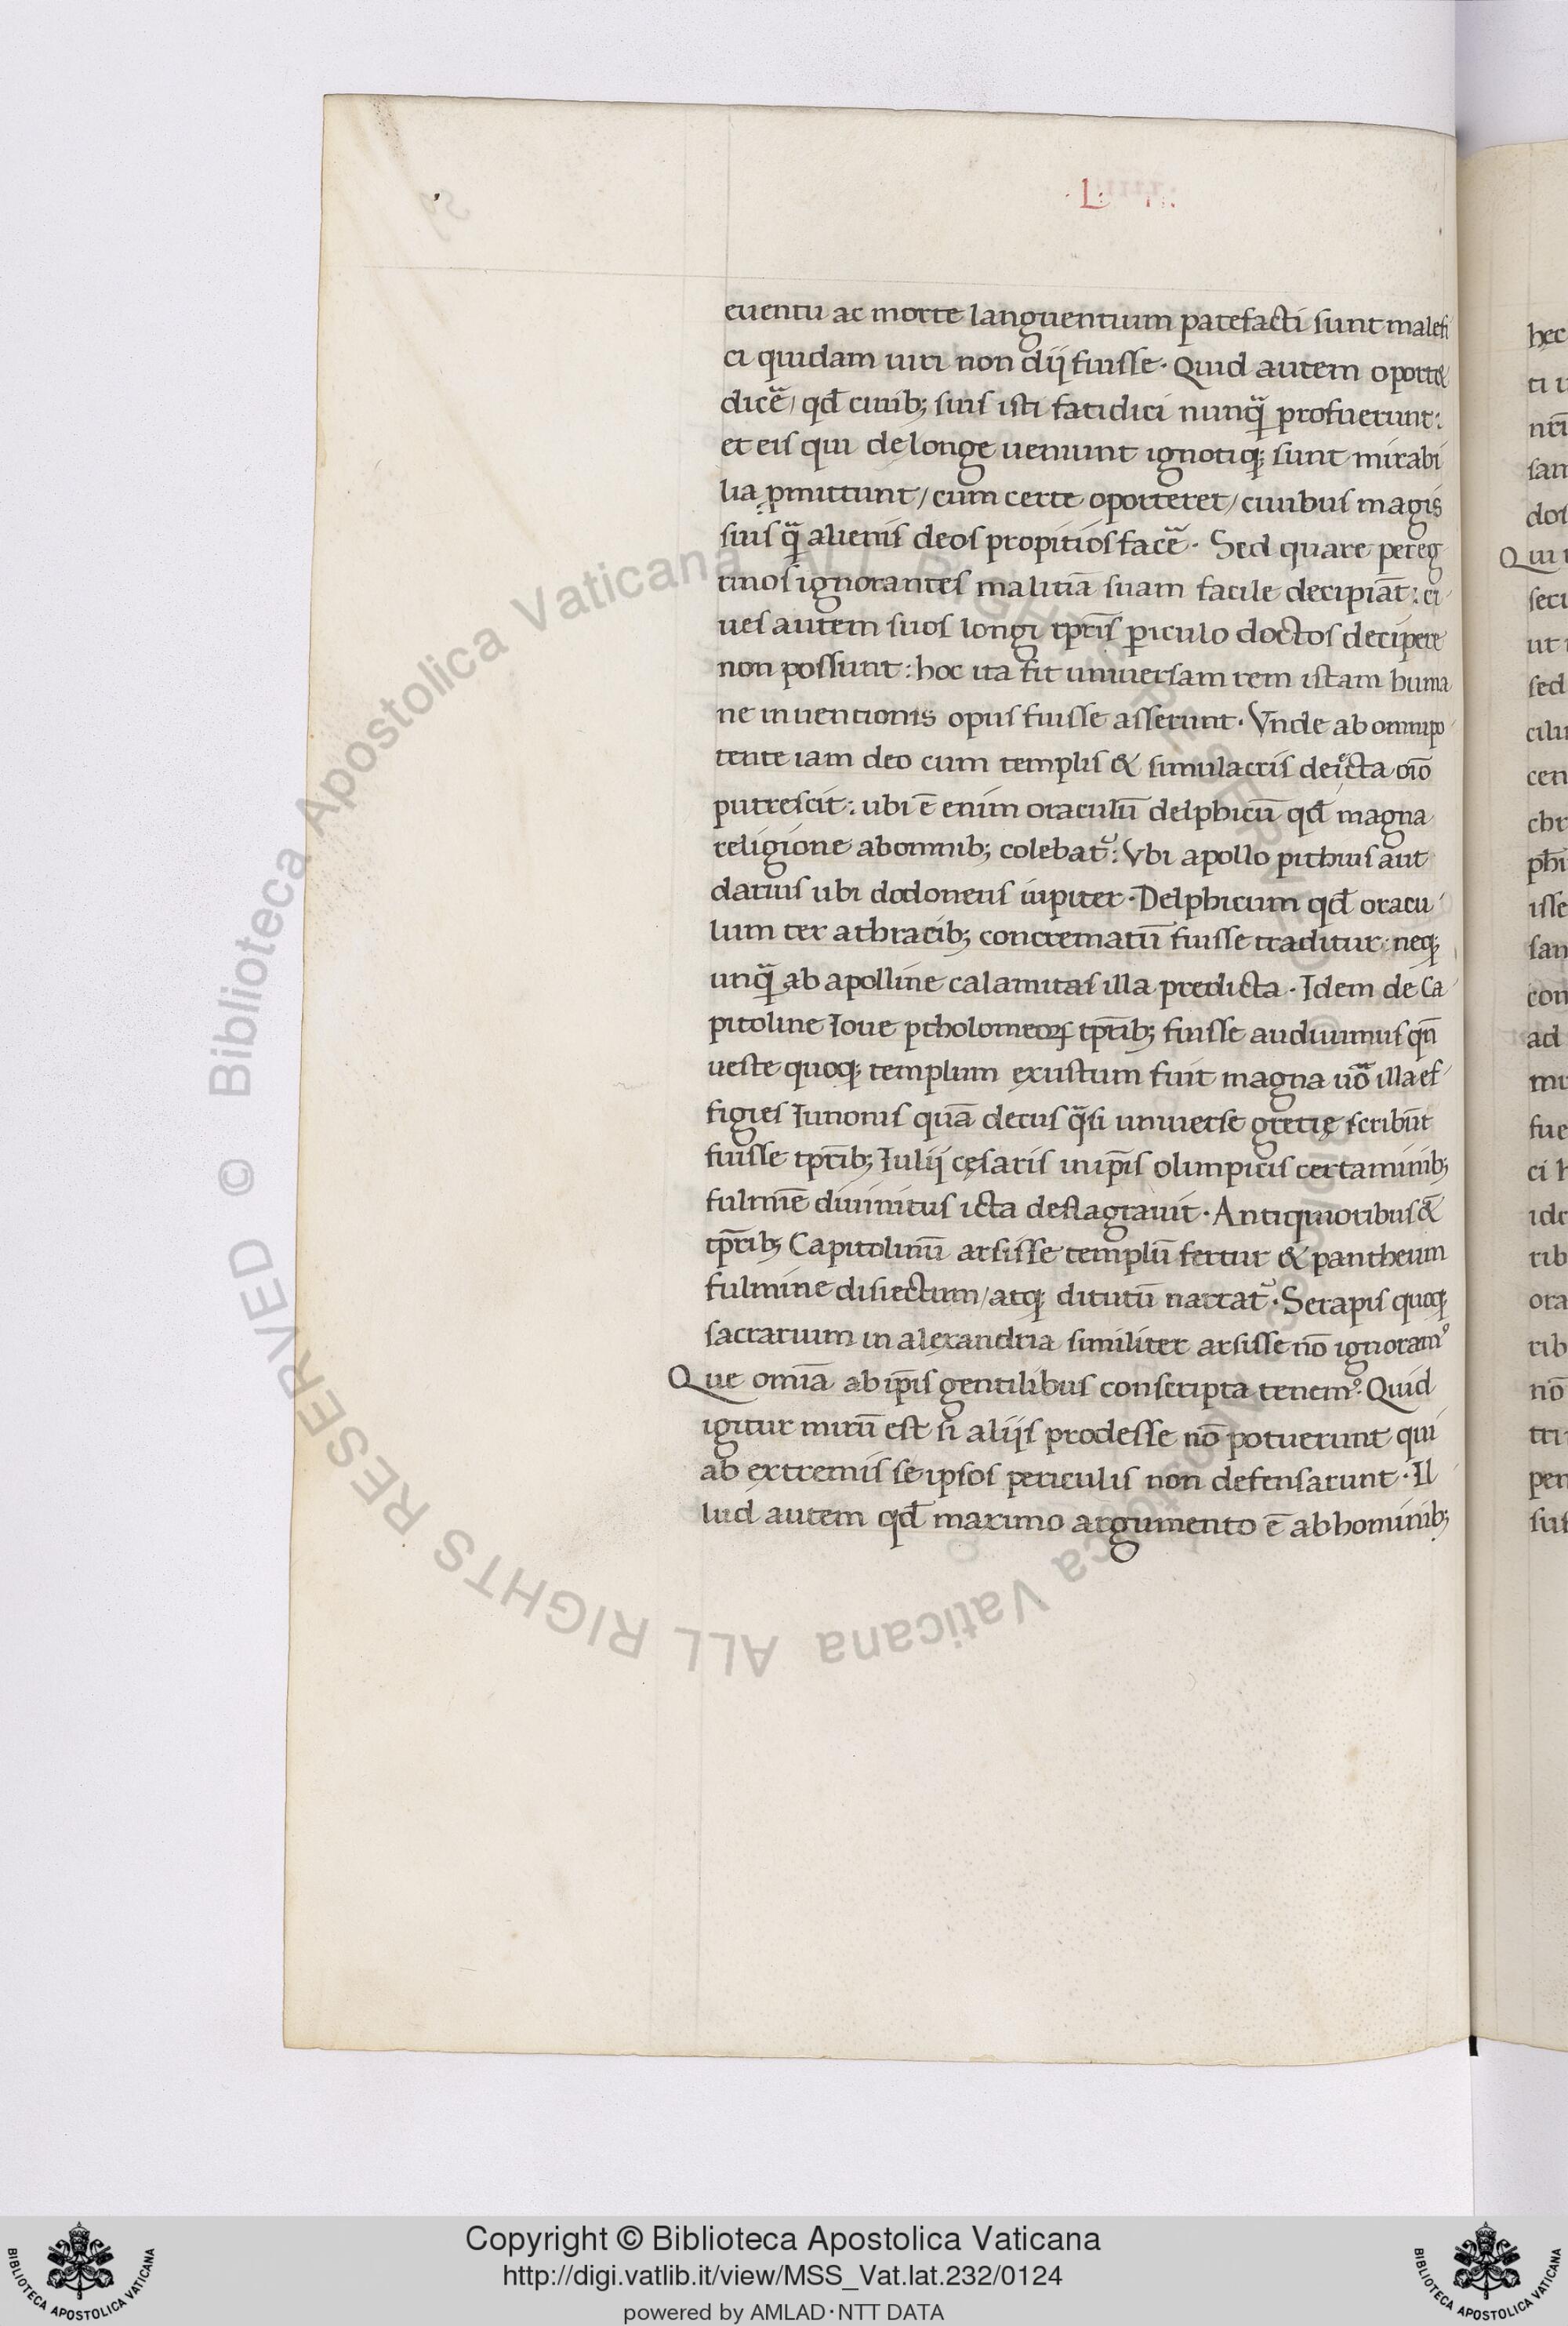 ·L·
euentu ac morte languentium patefacti sunt malefi
ci quidam uiri non dij fuisse· Quid autem oport&
dicē/ qđ ciuib; suis isti fatidici nunq̄ profuerunt:
et eis qui de longe ueniunt ignotiq; sunt mirabi
lia ꝓmittunt/ cum certe oporteret/ ciuibus magis
suis q̄ alienis deos propitios facē· Sed quare pereg
rinos ignorantes malitiā suam facile decipiāt: ci
ues autem suos longi tp̄ris ꝑiculo doctos decipere
non possunt: hoc ita fit uniuersam rem istam huma
ne inuentionis opus fuisse asserunt· Vnde ab omnipo
tente iam deo cum templis & simulacris deiecta oīo
putrescit: ubi ē enim oraculū delphicū qđ magna
religione ab omnib; colebat᷑: Vbi apollo pithius aut
darius ubi dodoneus iupiter· Delphicum qđ oracu
lum ter athracib; concrematū fuisse traditur: neq;
unq̄ ab apolline calamitas illa predicta· Idem de Ca
pitoline Ioue ptholomeoꝝ tp̄rib; fuisse audiuimus qn̄
ueste quoq; templum exustum fuit magna uō illa ef
figies Iunonis quā decus q̄si uniuerse gretię scribūt
fuisse tp̄rib; Iulij cęsaris in ip̄is olimpicis certaminib;
fulmīe diuinitus icta deflagrauit· Antiquioribus &̄
tp̄rib; Capitolinū arsisse templū fertur & pantheum
fulmine disiectum/ atq; dirutū narrat᷑· Serapis quoq;
sacrarium in alexandria similiter arsisse nō ignoramꝰ
Que omīa ab ip̄is gentilibus conscripta tenemꝰ· Quid
igitur mirū est si alijs prodesse nō potuerunt qui
ab extremis se ipsos periculis non defensarunt· Il
lud autem qđ maximo argumento ē ab hominib;
hec
nō
ad
Copyright © Biblioteca Apostolica Vaticana
http://digi.vatlib.it/view/MSS_Vat.lat.232/0124
powered by AMLAD·NTT DATA
BIBLIOTECA APOSTOLICA VATICANA
BIBLIOTECA APOSTOLICA VATICANA
© Biblioteca Apostolica Vaticana ALL RIGHTS RESERVED